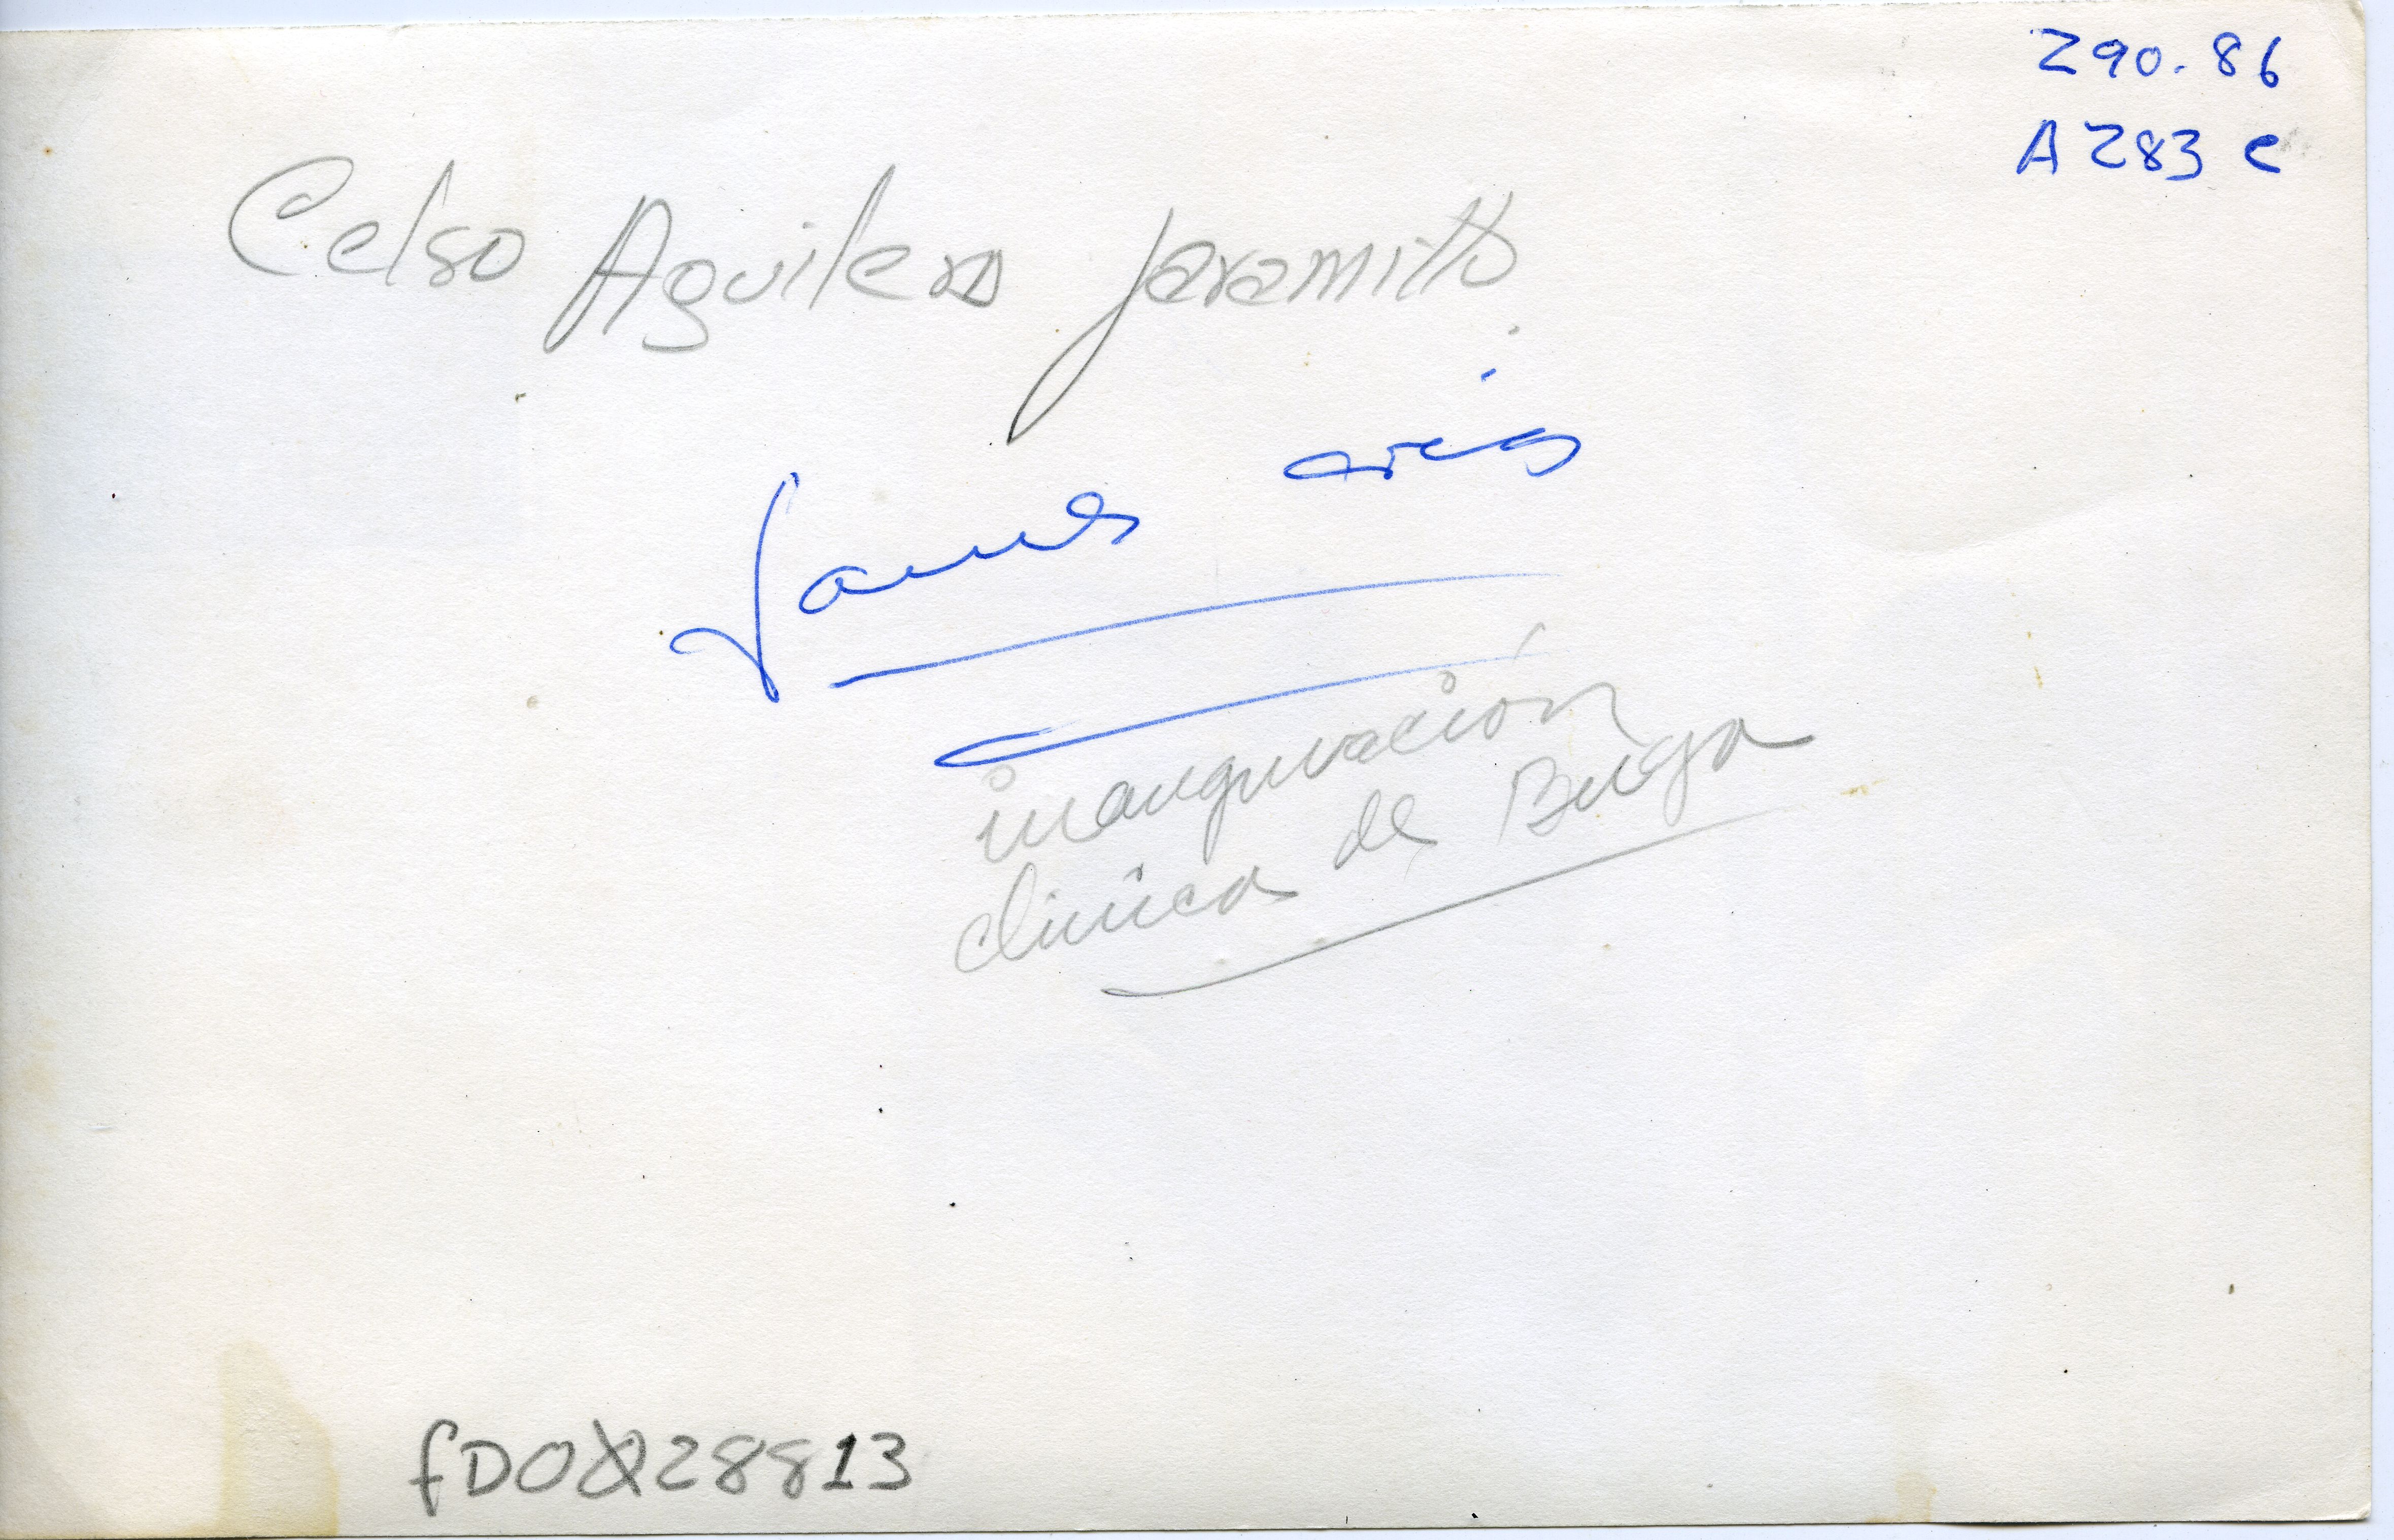 290.86
A283 e
Celso Aguilera Jaramillo
James Arias
inauguración
clinica de Buga
fD028813